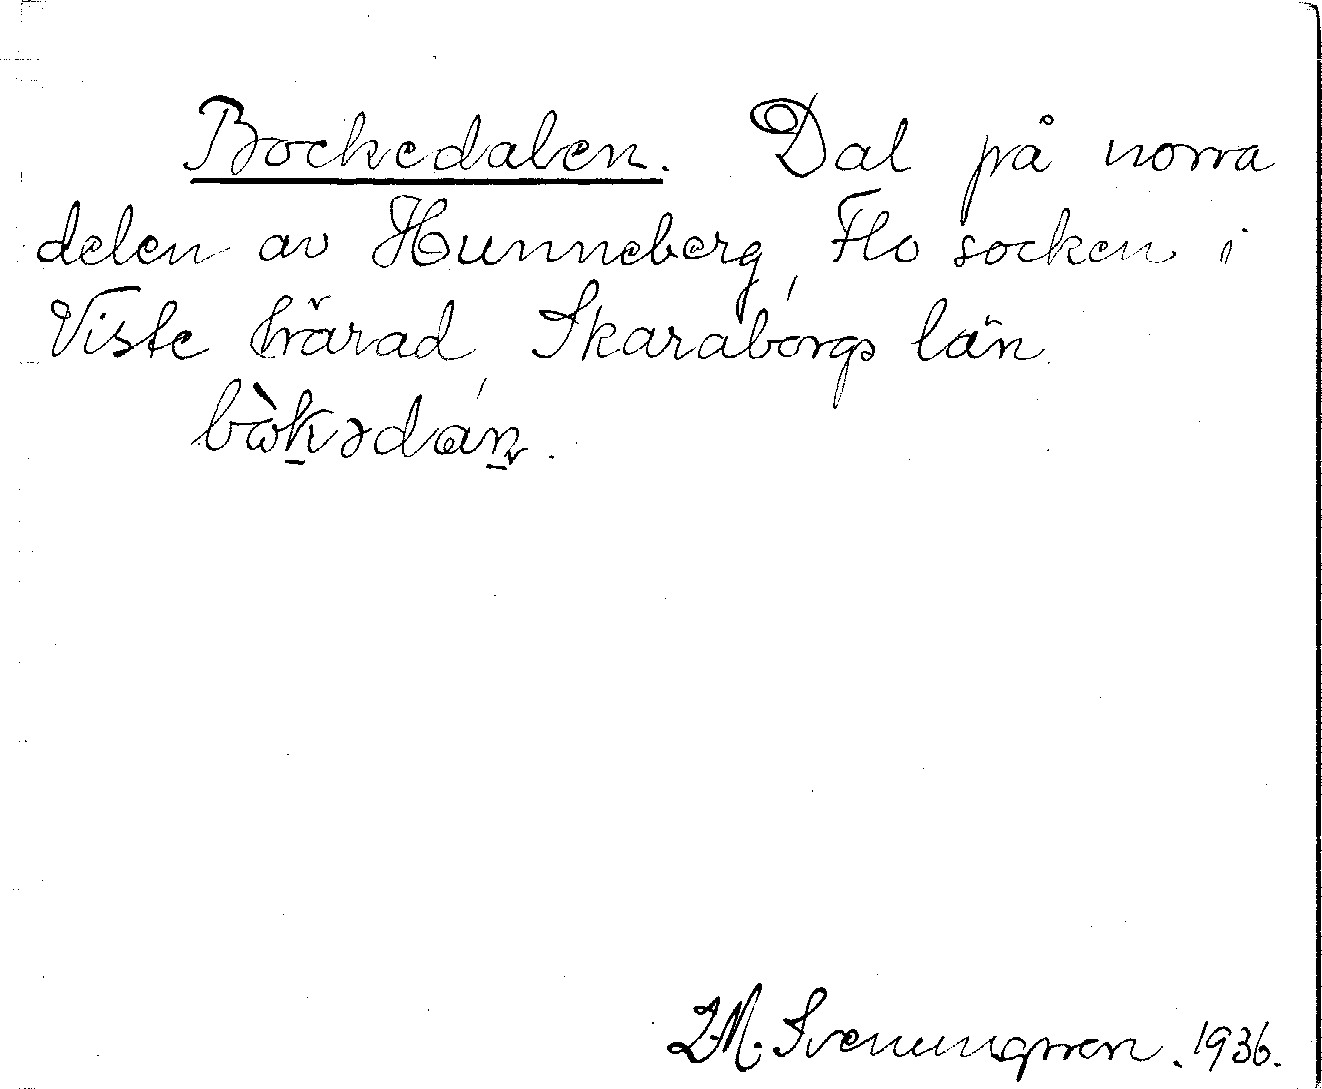 Bockedalen. Dal på norra
delen av Hunneberg, Flo socken i
Viste härad, Skaraborgs län.
bòkədan.
Svenungsson. 1936.